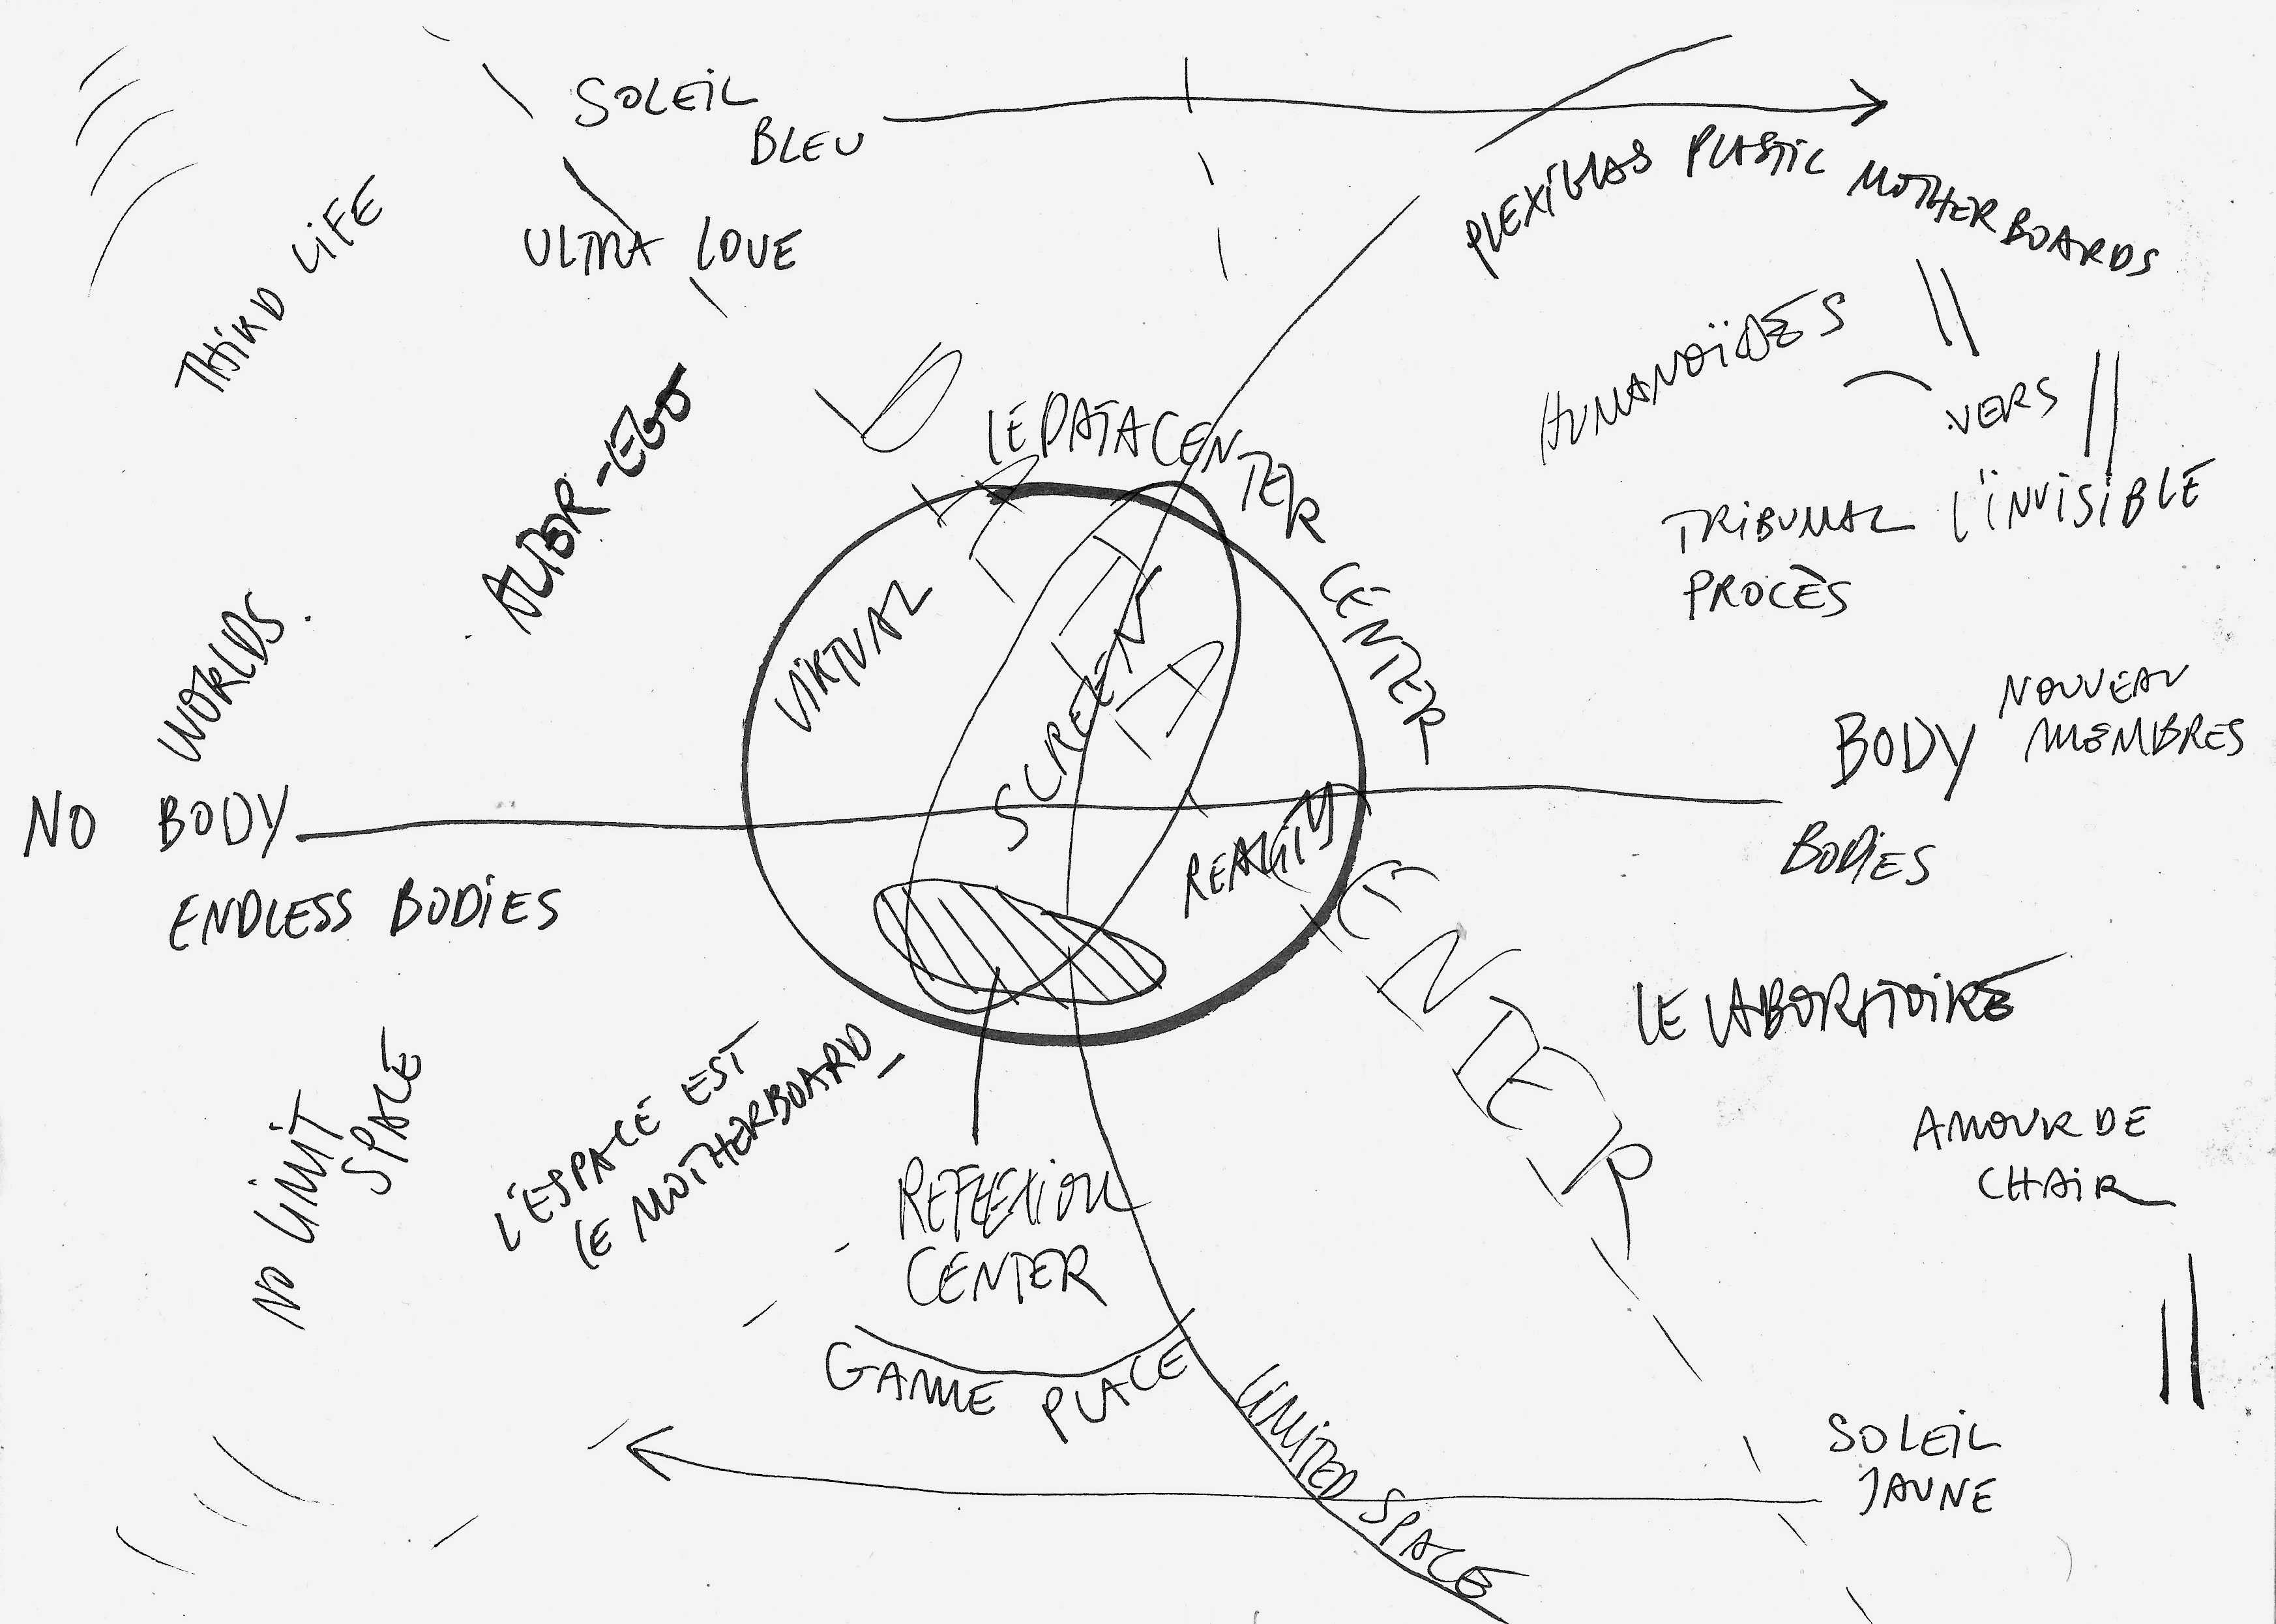 SOLEIL
BLEU
ULTRA LOVE
THIRD LIFE
PLEXIGLAS PLASTIC MOTHERBOARDS
HUMANOÏDES
VERS
L'INVISIBLE
TRIBUNAL
PROCÈS
LE DATACENTER CENTER
DATA
CENTER
VIRTUAL
SCREEN
REALITY
WORLDS
NO BODY
ENDLESS BODIES
BODY
NOUVEAU
MEMBRES
BODIES
LE LABORATOIRE
AMOUR DE
CHAIR
NO LIMIT
SPACE
L'ESPACE EST
LE MOTHERBOARD
REFLEXION
CENTER
GAME PLACE
LIMITED SPACE
SOLEIL
JAUNE